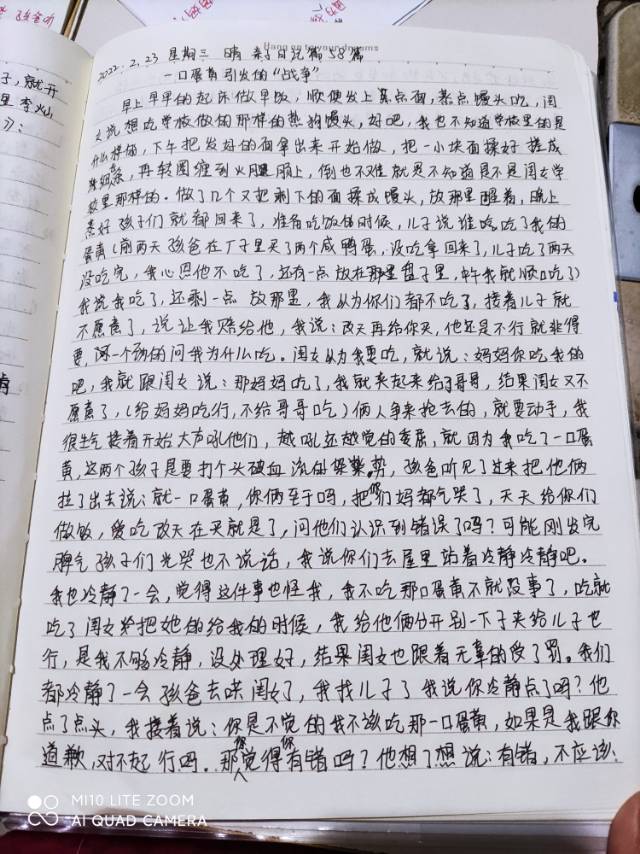 孩爸听
Hang on to your dreams
2022.2.23 星期三 晴 亲子日记第58篇
一口蛋黄引发的“战争”
早上早早的起床做早饭，顺便发上点面，蒸点馒头吃，闺
女说想吃学校做的那样的热狗馒头，好吧，我也不知道学校里的是
什么样的，下午把发好的面拿出来开始做，把一小块面揉好搓成
条，再转圈缠到火腿肠上，倒也不难就是不知道是不是闺女学
校里那样的。做了几个又把剩下的面揉成馒头，放那里醒着，晚上
蒸好孩子们就都回来了，准备吃饭的时候，儿子说谁吃吃了我的
蛋黄（前两天孩爸在厂子里买了两个咸鸭蛋，没吃拿回来了，儿子吃了两天
没吃完，我心思他不吃了，还有一点放在那里盘子里，中午我就顺口吃了）
我说我吃了，还剩一点放那里，我以为你们都不吃了，接着儿子就
不愿意了，说让我赔给他，我说：改天再给你买，他还是不行就非得
要，一个劲的问我为什么吃。闺女以为我要吃，就说：妈妈你吃我的
吧，我就跟闺女说：那妈妈吃了，我就夹起来给了哥哥，结果闺女又不
愿意了，（给妈妈吃行，不给哥哥吃）俩人争来抢去的，就要动手，我
很生气接着开始大声吼他们，越吼还越觉的委屈，就因为我吃了一口蛋
黄，这两个孩子是要打个头破血流的架势，孩爸听见了过来把他俩
拉了出去说：就一口蛋黄，你俩至于吗，把你们妈都气哭了，天天给你们
做饭，爱吃改天在买就是了，问他们认识到错误了吗？可能刚发完
脾气孩子们光哭也不说话，我说你们去屋里站着冷静冷静吧。
我也冷静了一会，觉得这件事也怪我，我不吃那口蛋黄不就没事了，吃就
吃了闺女把她的给我的时候，我给他俩分开别一下子夹给儿子也
行，是我不够冷静，没处理好，结果闺女也跟着无辜的受了罚。我们
都冷静了一会孩爸去哄闺女了，我找儿子了我说你冷静点了吗？他
点了点头，我接着说：你是不觉的我不该吃那一口蛋黄，如果是我跟你
道歉，对不起行吗。那你觉得你有错吗？他想了想说：有错，不应该：
MI 10 LITE ZOOM
AI QUAD CAMERA